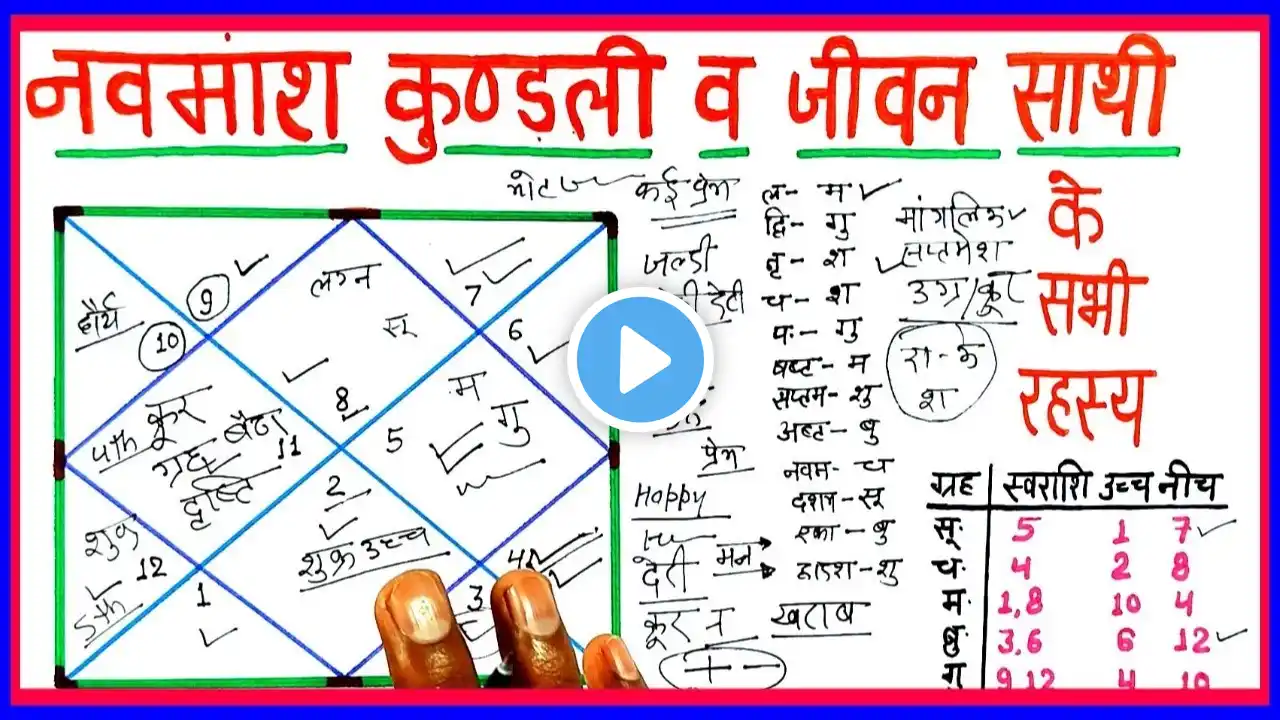 नवमांश कुण्डली व जीवन साथी
के
सभी
रहस्य
लग्न
सू
9
10
7
6
8
म
गु
5
4th क्रूर
ग्रह बैठा
दृष्टि
11
2
शुक्र उच्च
शुक्र
12
5th
1
3
कई प्रेम
जल्दी
प्रेम
Happy
देती
मन
क्रूर
खराब
ल- म
द्वि- गु
तृ- श
च- श
पं- गु
षष्ट- म
सप्तम- शु
अष्ट- बु
नवम- च
दशम- सू
एका- बु
द्वादश- शु
मांगलिक
सप्तमेश
उग्र/क्रूर
रा-के
श
ग्रह स्वराशि उच्च नीच
सू. 5 1 7
च. 4 2 8
म. 1,8 10 4
बु. 3,6 6 12
गु 9,12 4 10